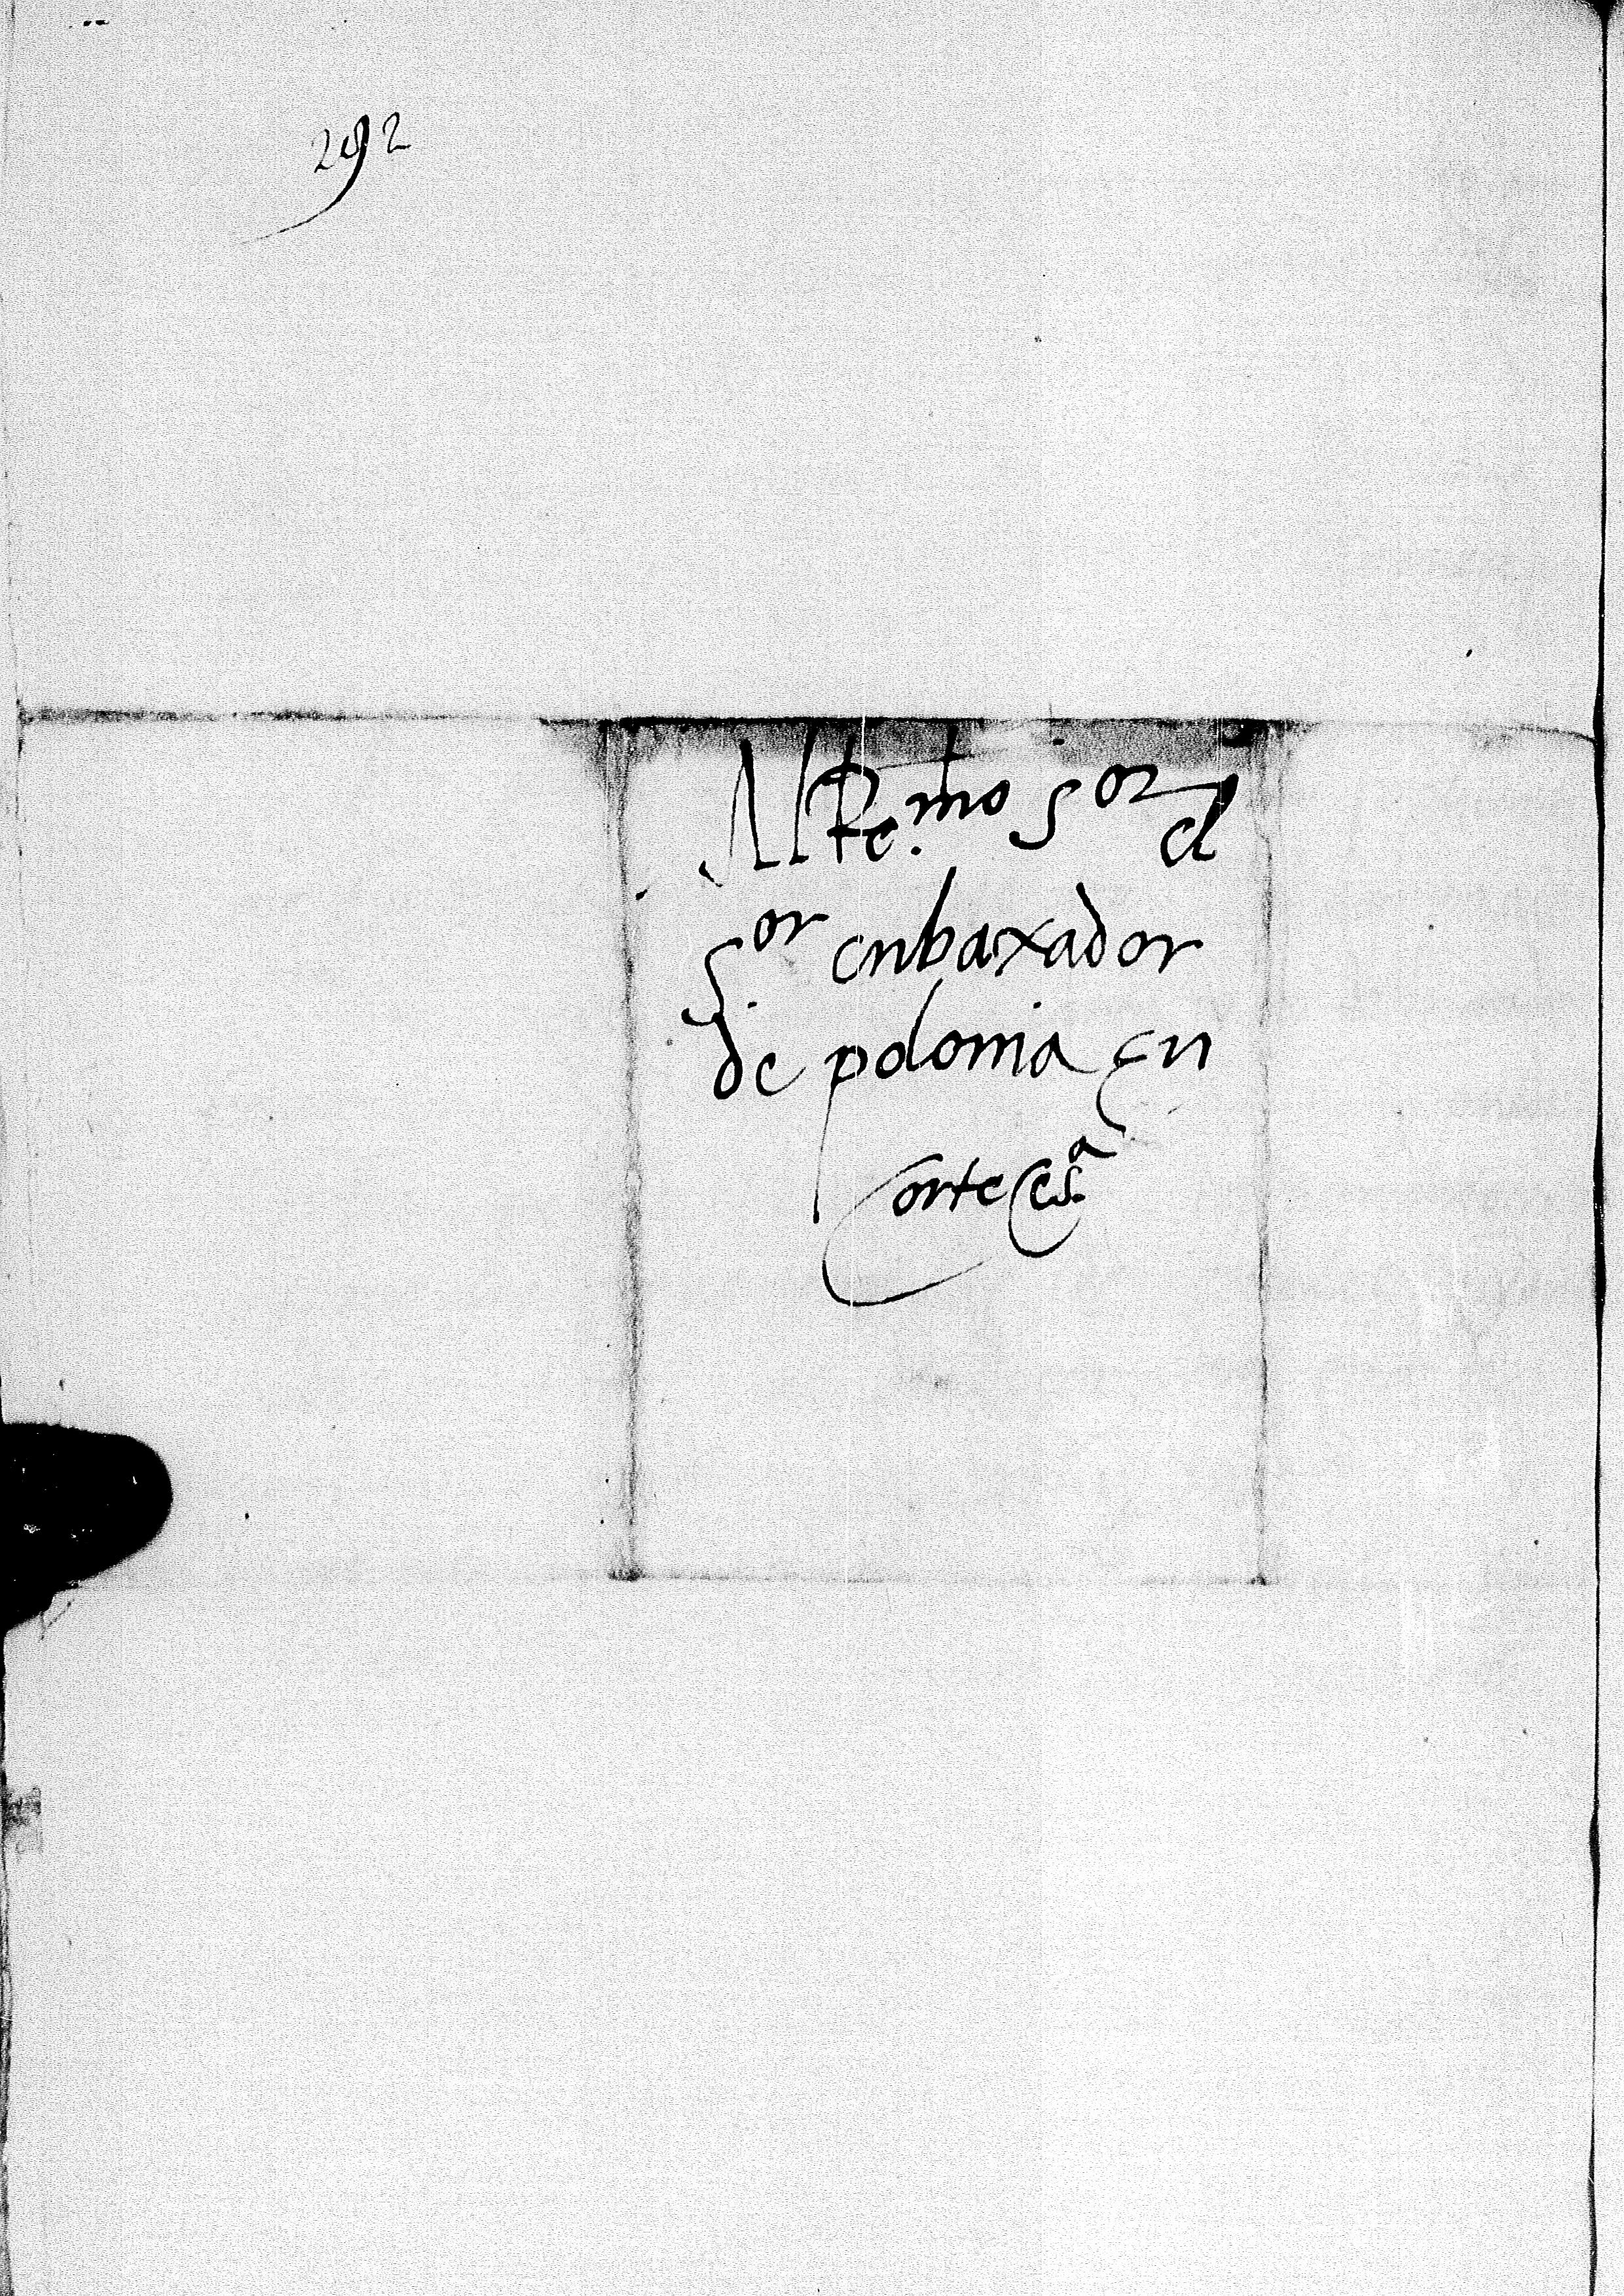 292
Al Re.mo Sor el
Sor enbaxador
de polonia en
Corte Ces.a